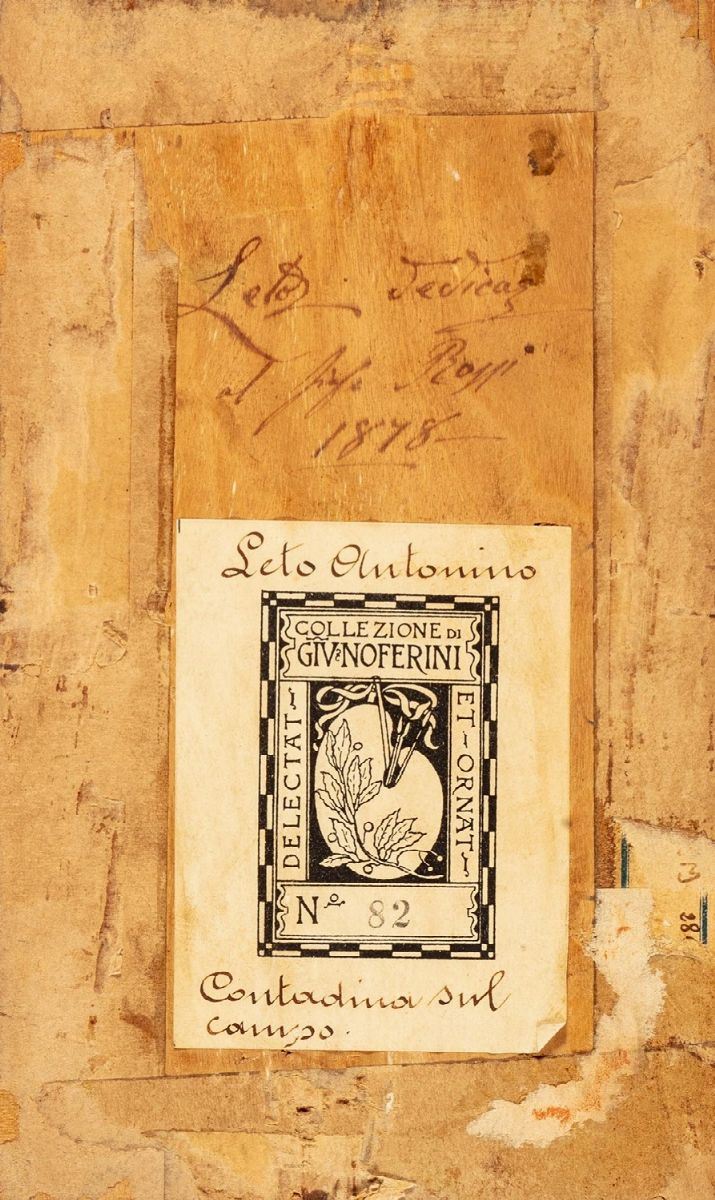 Leto dedica
al Rossi
1878
Leto Antonino
COLLEZIONE DI
GIV.e NOFERINI
DELECTAT
ET ORNAT
No 82
Contadina sul
campo.